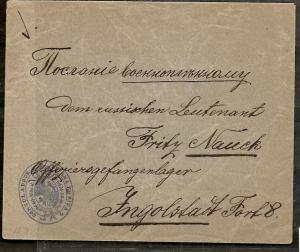 Посланіе военноплѣнному
dem russischen Leutenant
Fritz Nauck
Offiziersgefangenlager
Ingolstadt Fort 8.